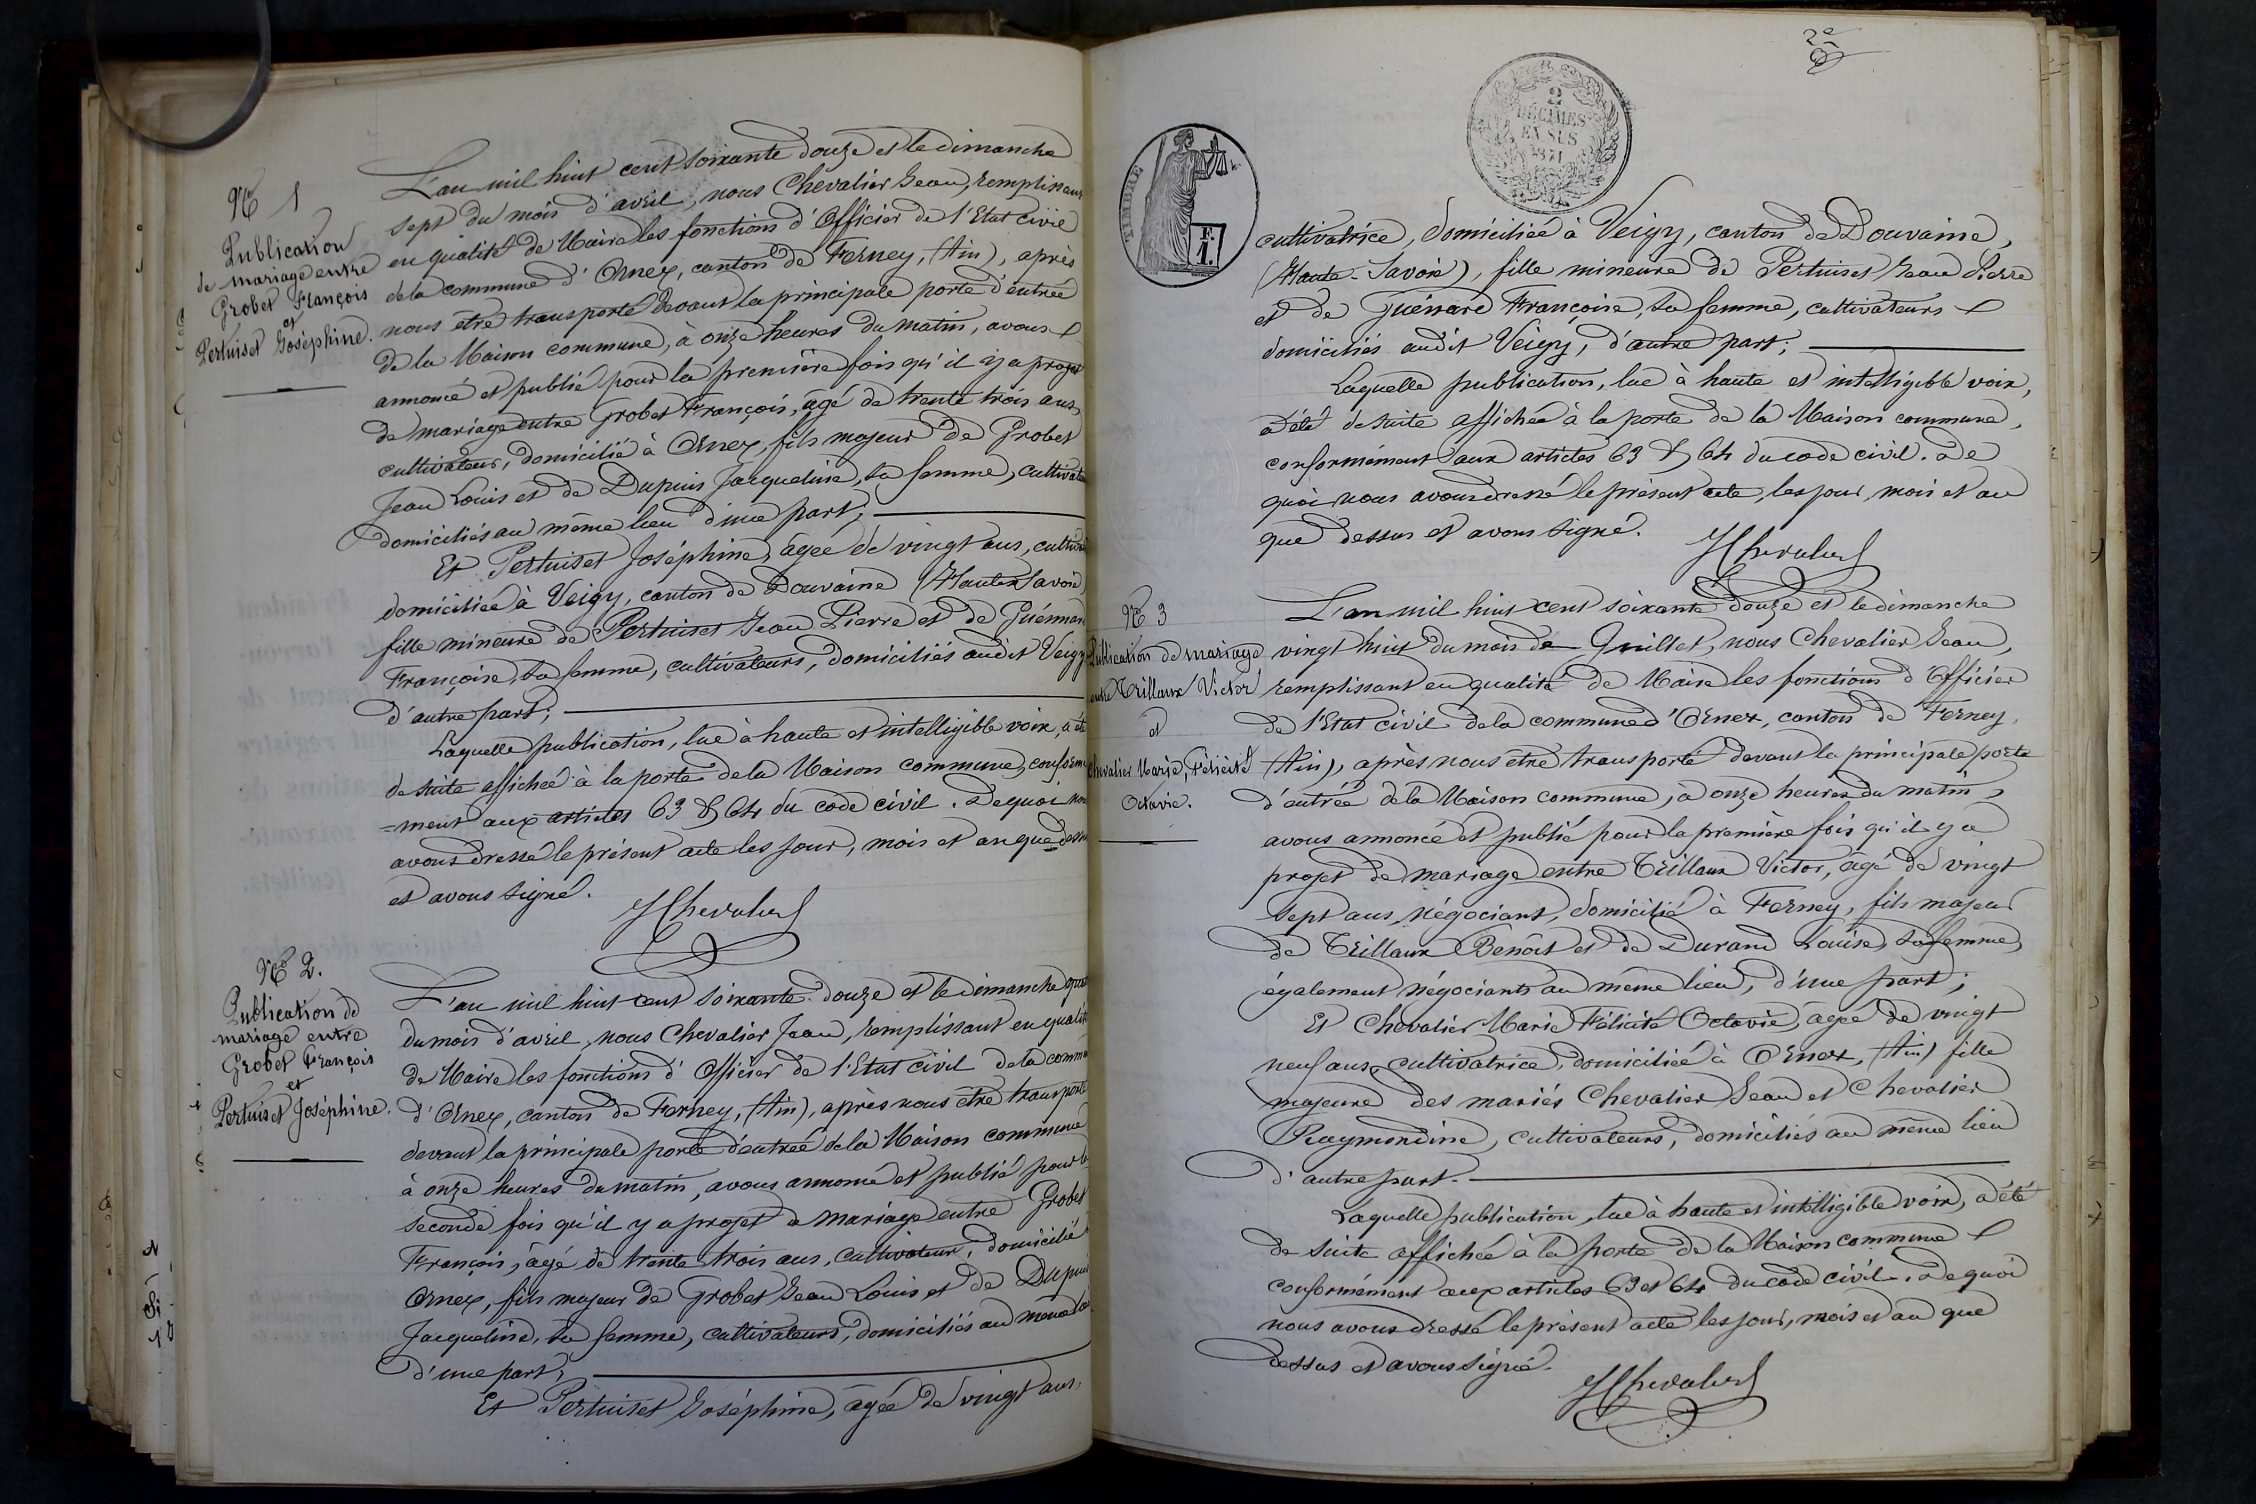 No 1
Publication
de mariage entre
Grobet François
et
Pertuiset Joséphine.
L'an mil huit cent soixante douze et le dimanche
sept du mois d'avril, nous Chevalier Jean, remplissant
en qualité de Maire les fonctions d'Officier de l'Etat civil
de la commune d'Ornex, canton de Ferney, (Ain), après
nous être transporté devant la principale porte d'entrée
de la Maison commune, à onze heures du matin, avons
annoncé et publié pour la première fois qu'il y a projet
de mariage entre Grobet François, âgé de trente trois ans,
cultivateur, domicilié à Ornex, fils majeur de Grobet
Jean Louis et de Dupuis Jacqueline, sa femme, cultivate
domiciliés au même lieu d'une part;
Et Pertuiset Joséphine, âgée de vingt ans, cultivat
domiciliée à Veigy, canton de Douvaine (Haute Savoie)
fille mineure de Pertuiset Jean Pierre et de Guénnar
Françoise, sa femme, cultivateurs, domiciliés audit Veigy
d'autre part;
Laquelle publication, lue à haute et intelligible voix, a été
de suite affichée à la porte de la Maison commune, conformé
=ment aux articles 63 & 64 du code civil. De quoi nous
avons dressé le présent acte les jour, mois et an que dessus
et avons signé.
JChevalier
No 2.
Publication de
mariage entre
Grobet François
et
Pertuiset Joséphine.
L'an mil huit cent soixante douze et le dimanche
du mois d'avril, nous Chevalier Jean, remplissant en qualité
de Maire les fonctions d'Officier de l'Etat civil de la commu
d'Ornex, canton de Ferney, (Ain), après nous être transporté
devant la principale porte d'entrée de la Maison commune
à onze heures du matin, avons annoncé et publié pour la
seconde fois qu'il y a projet de mariage entre Grobet
François, âgé de trente trois ans, cultivateur, domicilié
Ornex, fils majeur de Grobet Jean Louis et de Dupuis
Jacqueline, sa femme, cultivateurs, domiciliés au même lieu
d'une part;
Et Pertuiset Joséphine, âgée de vingt ans,
2e
TIMBRE
F.
1.
2
DÉCIMES
EN SUS
1871
cultivatrice, domiciliée à Veigy, canton de Douvaine,
(Haute-Savoie), fille mineure de Pertuiset Jean Pierre
et de Guénnard Françoise, sa femme, cultivateurs
domiciliés audit Veigy, d'autre part;
Laquelle publication, lue à haute et intelligible voix,
a été de suite affichée à la porte de la Maison commune,
conformément aux articles 63 & 64 du code civil. De
quoi nous avons dressé le présent acte, les jour, mois et an
que dessus et avons signé.
JChevalier
No 3
Publication de mariage
entre Trillaux Victor
et
Chevalier Marie, Félicité
Octavie.
L'an mil huit cent soixante douze et le dimanche
vingt huit du mois de Juillet, nous Chevalier Jean,
remplissant en qualité de Maire les fonctions d'Officier
de l'Etat civil de la commune d'Ornex, canton de Ferney,
(Ain), après nous être transporté devant la principale porte
d'entrée de la Maison commune, à onze heures du matin,
avons annoncé et publié pour la première fois qu'il y a
projet de mariage entre Trillaux Victor, âgé de vingt
sept ans, négociant, domicilié à Ferney, fils majeur
de Trillaux Benoît et de Durand Louise, sa femme,
également négociants au même lieu, d'une part;
Et Chevalier Marie Félicité Octavie, âgée de vingt
neuf ans, cultivatrice, domiciliée à Ornex, (Ain) fille
majeure des mariés Chevalier Jean et Chevalier
Raymondine, cultivateurs, domiciliés au même lieu
d'autre part.
Laquelle publication, lue à haute et intelligible voix, a été
de suite affichée à la porte de la Maison commune
conformément aux articles 63 et 64 du code civil. De quoi
nous avons dressé le présent acte les jour, mois et an que
dessus et avons signé.
JChevalier